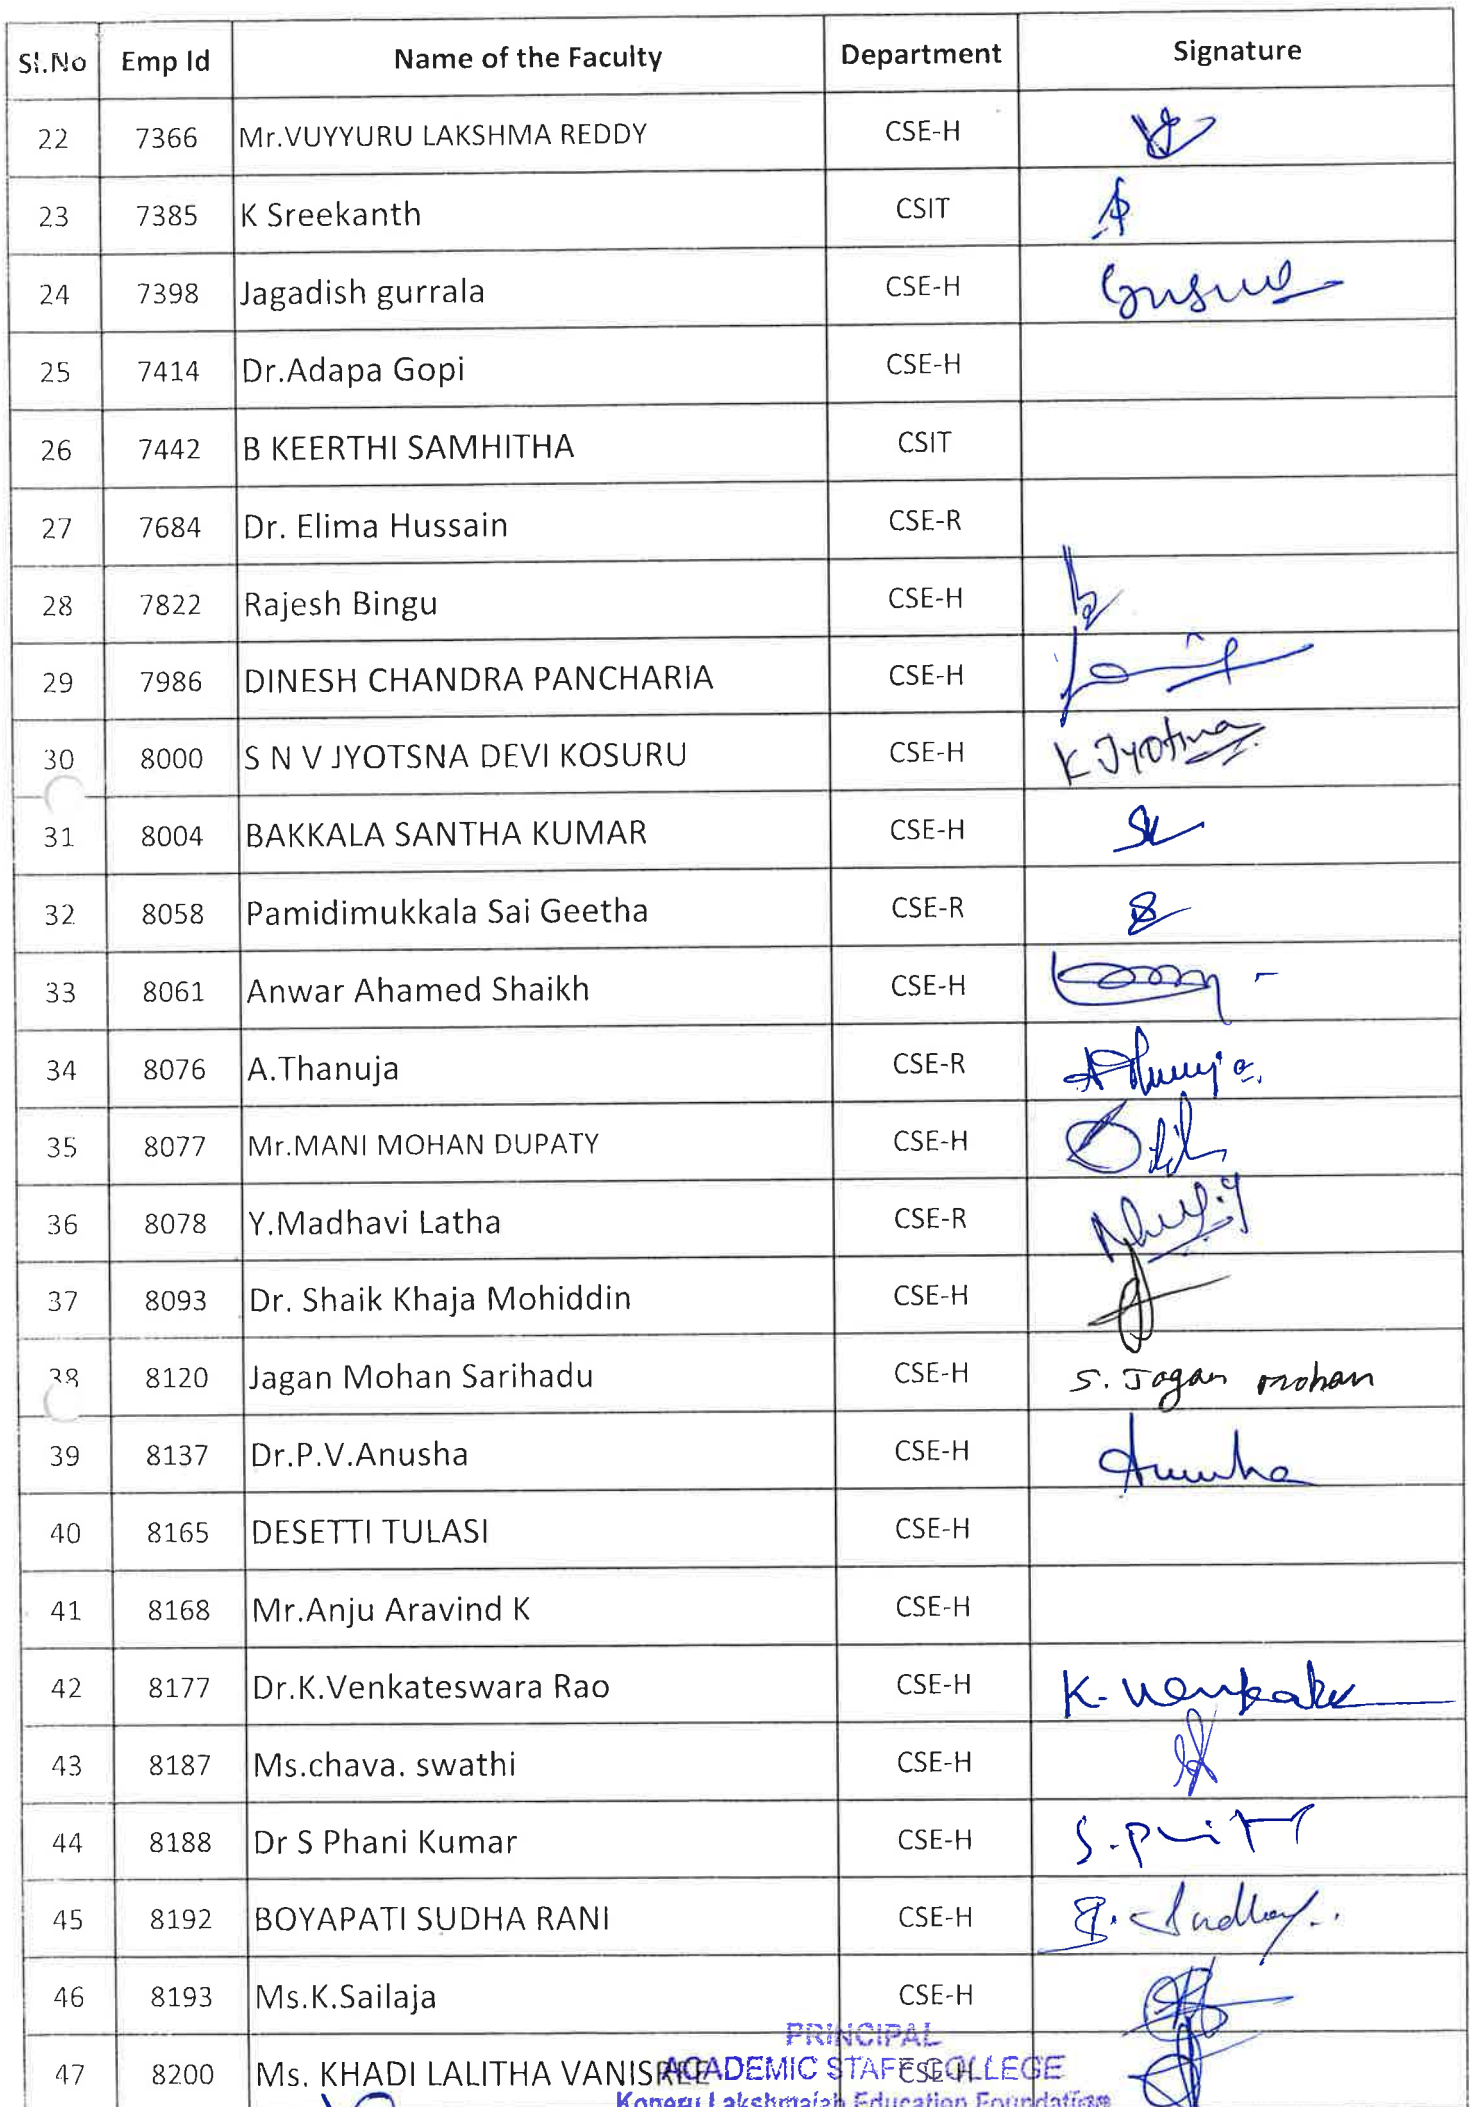 Sl.No Emp Id Name of the Faculty Department Signature
22 7366 Mr.VUYYURU LAKSHMA REDDY CSE-H
23 7385 K Sreekanth CSIT
24 7398 Jagadish gurrala CSE-H
25 7414 Dr.Adapa Gopi CSE-H
26 7442 B KEERTHI SAMHITHA CSIT
27 7684 Dr. Elima Hussain CSE-R
28 7822 Rajesh Bingu CSE-H
29 7986 DINESH CHANDRA PANCHARIA CSE-H
30 8000 S N V JYOTSNA DEVI KOSURU CSE-H K Jyotsna
31 8004 BAKKALA SANTHA KUMAR CSE-H
32 8058 Pamidimukkala Sai Geetha CSE-R
33 8061 Anwar Ahamed Shaikh CSE-H
34 8076 A.Thanuja CSE-R
35 8077 Mr.MANI MOHAN DUPATY CSE-H
36 8078 Y.Madhavi Latha CSE-R
37 8093 Dr. Shaik Khaja Mohiddin CSE-H
38 8120 Jagan Mohan Sarihadu CSE-H S. Jagan mohan
39 8137 Dr.P.V.Anusha CSE-H Anusha
40 8165 DESETTI TULASI CSE-H
41 8168 Mr.Anju Aravind K CSE-H
42 8177 Dr.K.Venkateswara Rao CSE-H
43 8187 Ms.chava. swathi CSE-H
44 8188 Dr S Phani Kumar CSE-H
45 8192 BOYAPATI SUDHA RANI CSE-H
46 8193 Ms.K.Sailaja CSE-H
PRINCIPAL
47 8200 Ms. KHADI LALITHA VANISREE CSE-H
ACADEMIC STAFF COLLEGE
Koneru Lakshmaiah Education Foundation